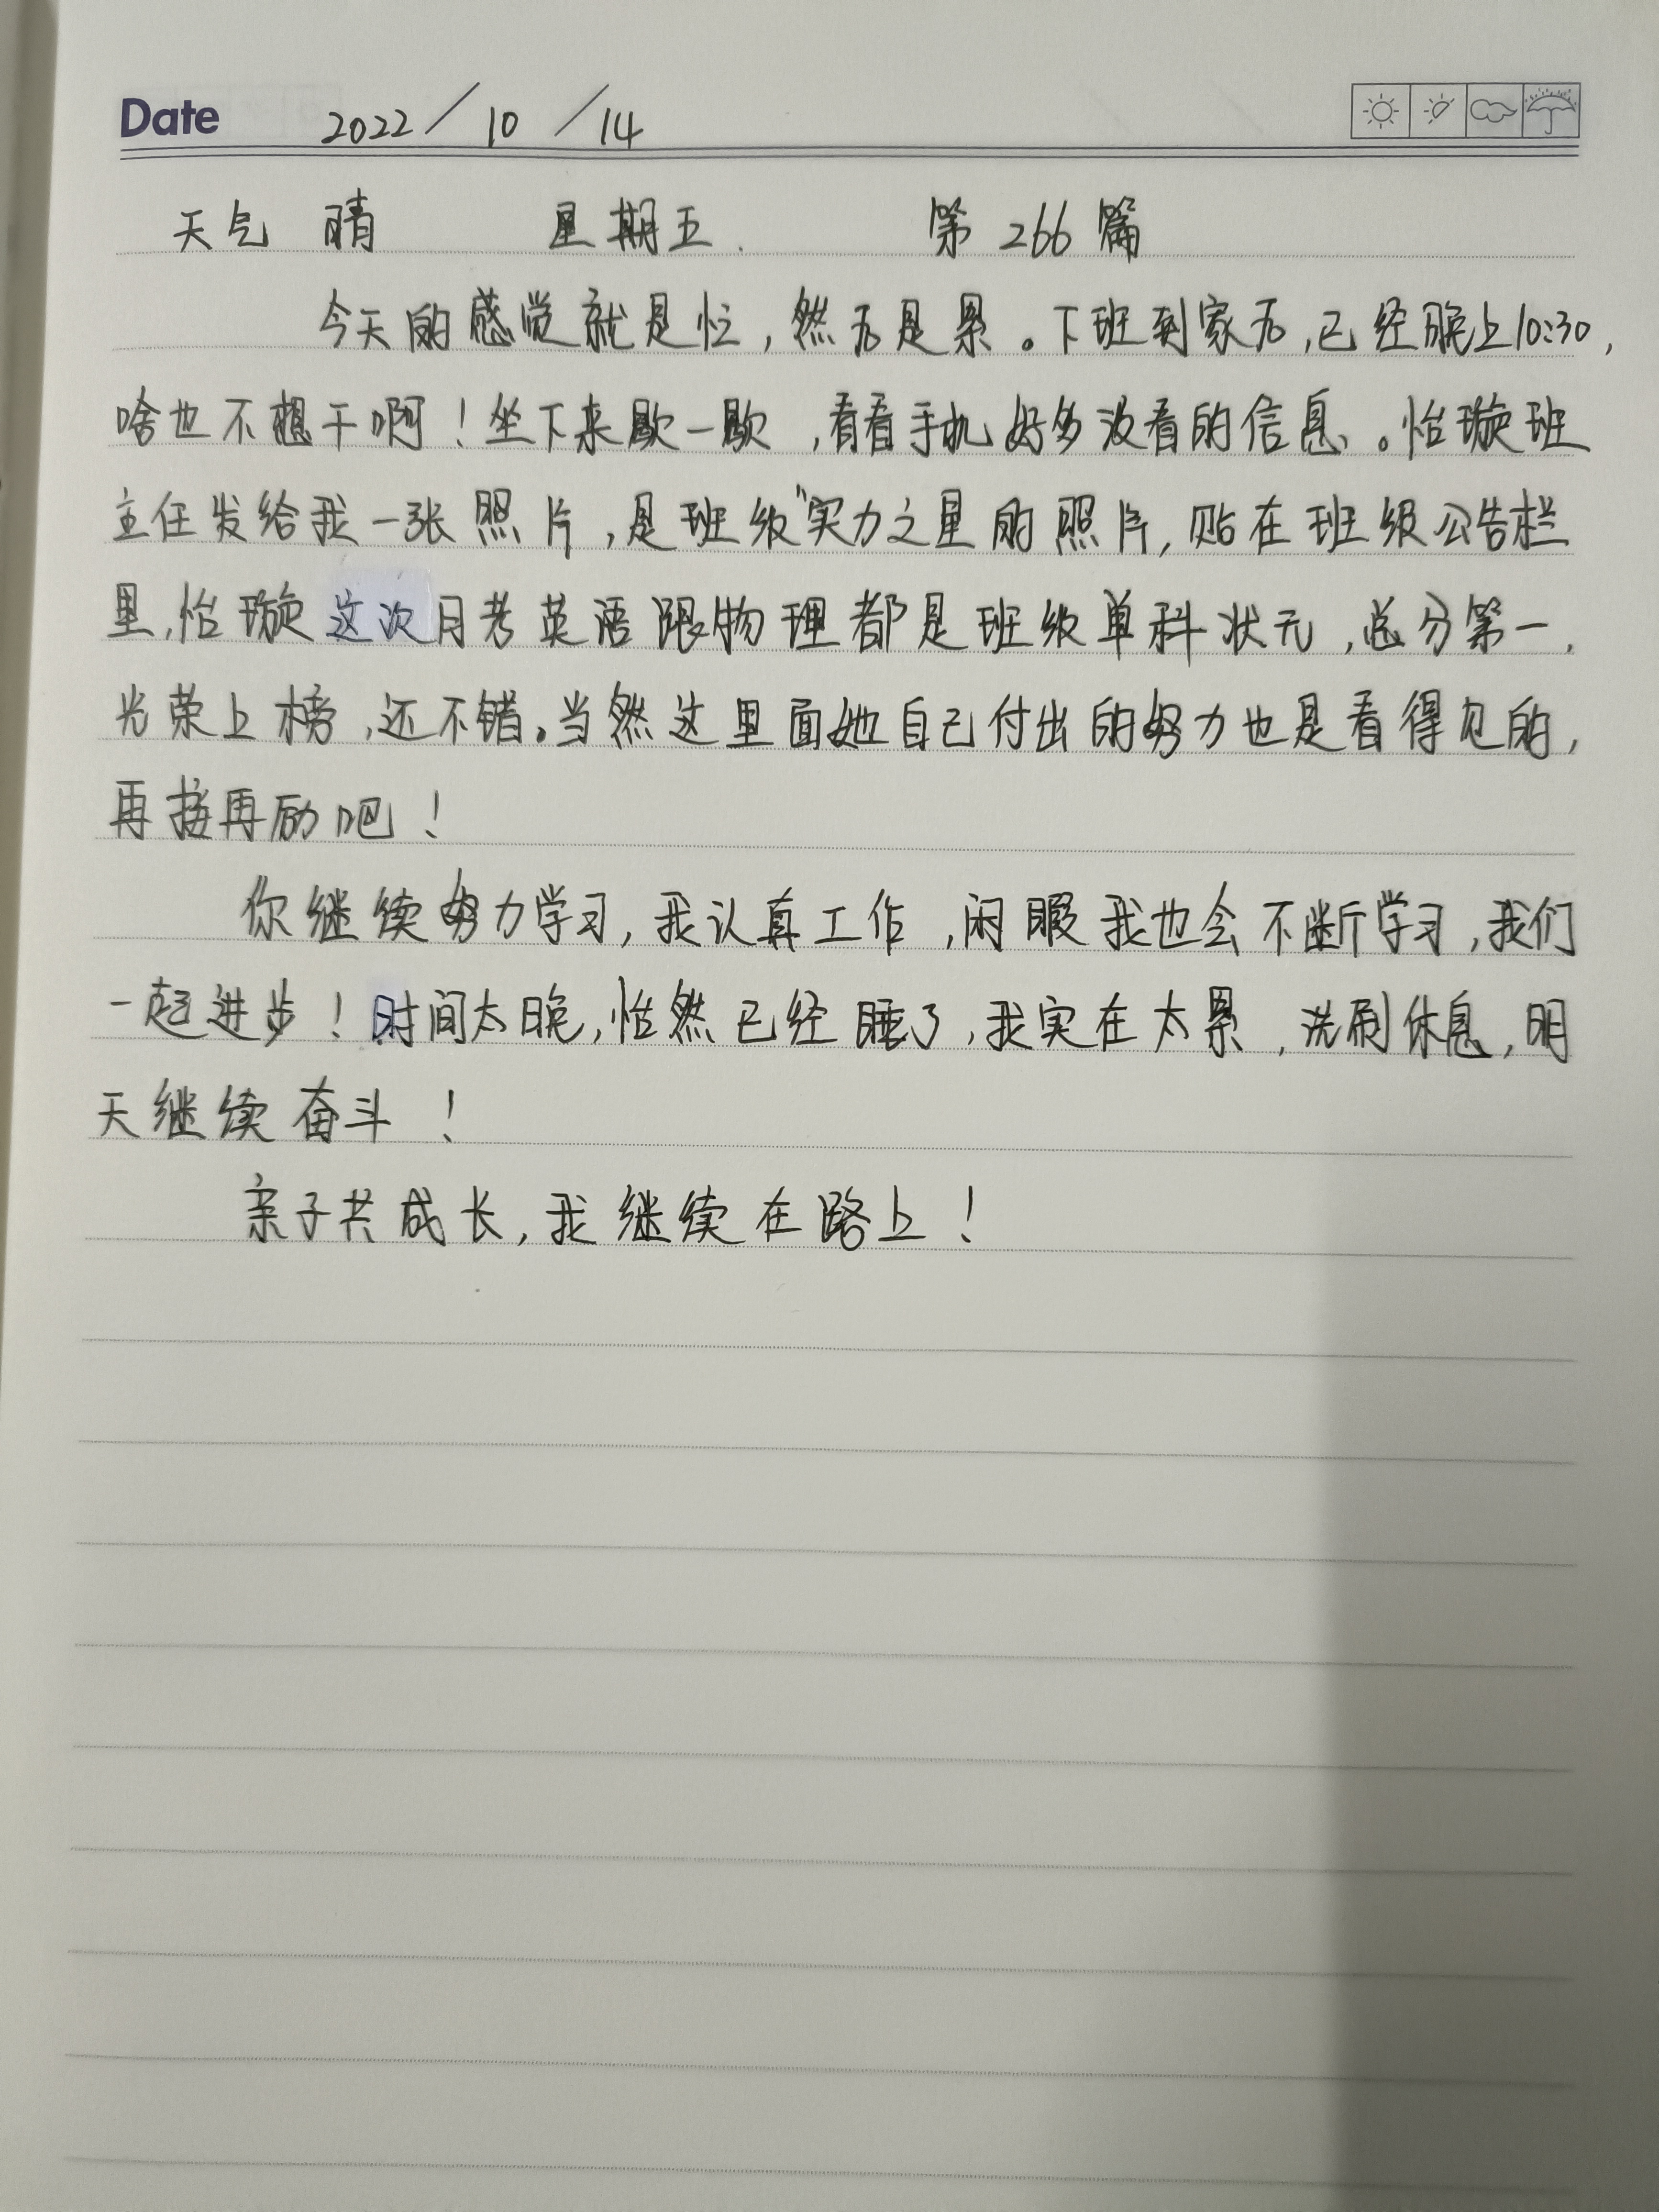 Date 2022/10/14
天气 晴 星期五. 第266篇
今天的感觉就是忙,然后是累。下班到家后,已经晚上10:30,
啥也不想干啊!坐下来歇一歇,看看手机好多没看的信息。怡璇班
主任发给我一张照片,是班级“实力之星的照片,贴在班级公告栏
里,怡璇这次月考英语跟物理都是班级单科状元,总分第一,
光荣上榜,还不错。当然这里面她自己付出的努力也是看得见的,
再接再励吧!
你继续努力学习,我认真工作,闲暇我也会不断学习,我们
一起进步!时间太晚,怡然已经睡了,我实在太累,洗刷休息,明
天继续奋斗!
亲子共成长,我继续在路上!